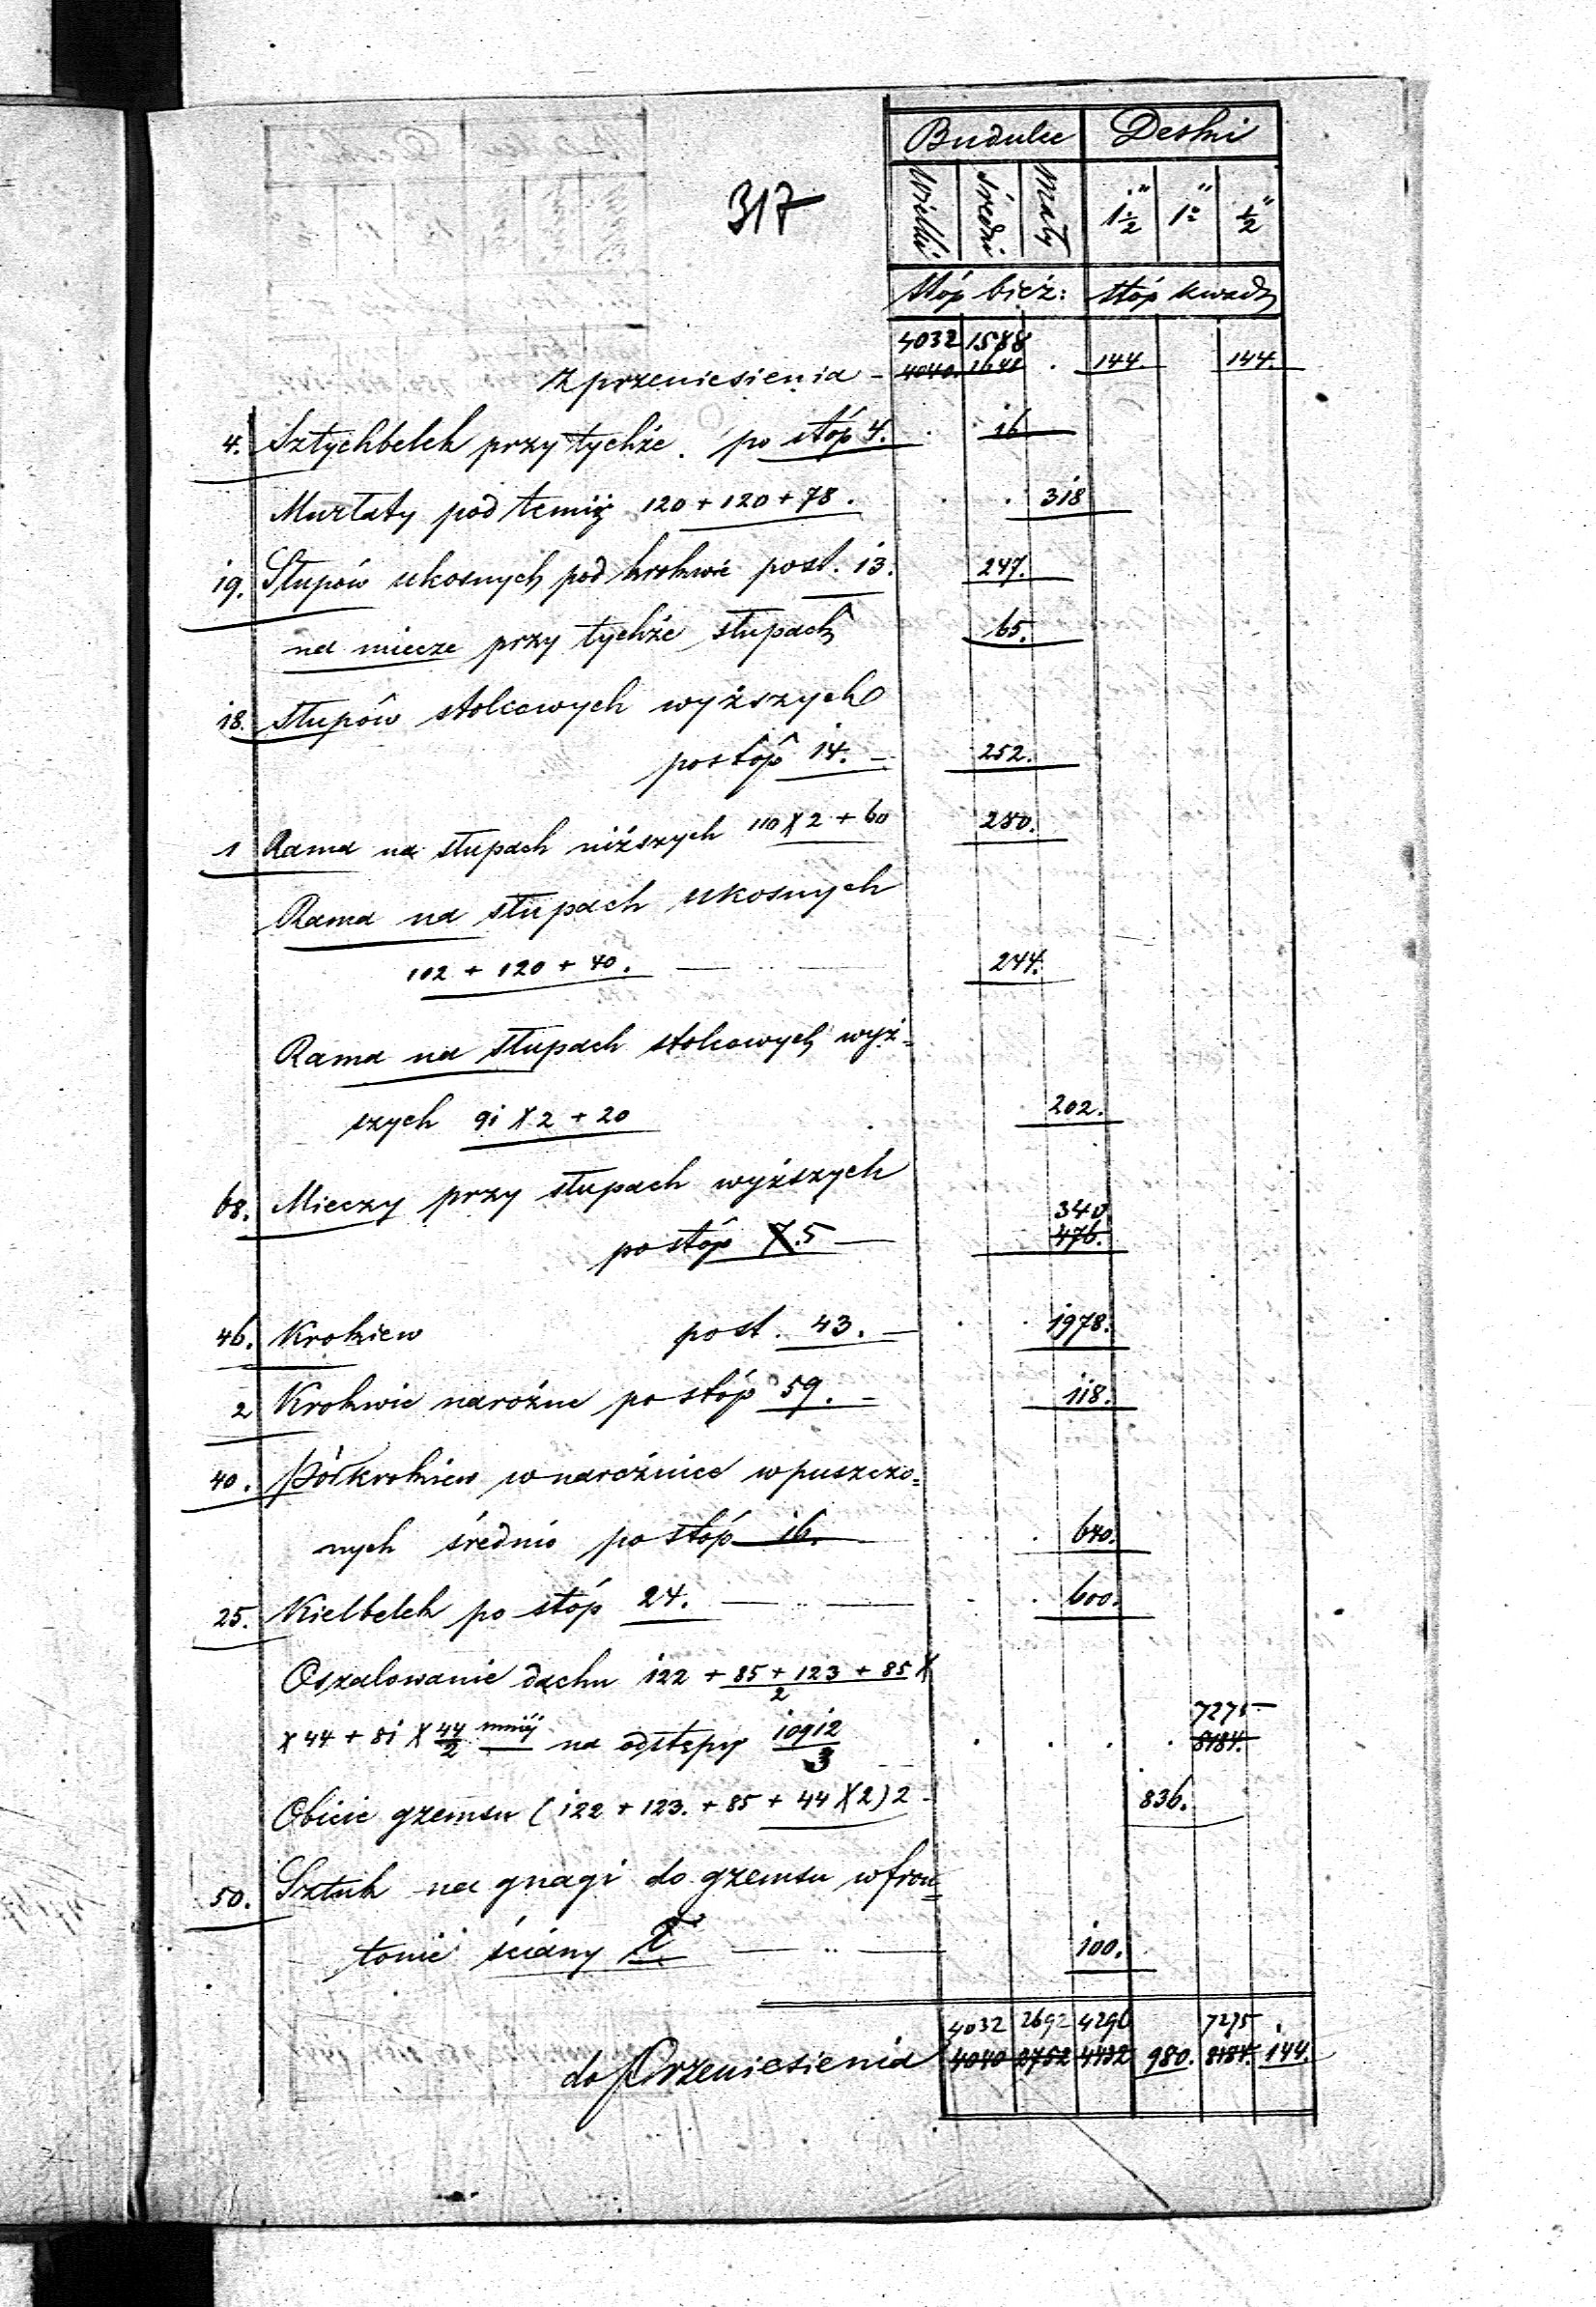 317
Budulec Deski
Wielki średni mały 1½" 1" ½"
stóp bież: stóp kwadr
4032 1588
z przeniesienia - 4040. 1648 . 144. 144.
4. Sztychbelek przy tychże. po stóp 4. 16
Murłaty pod temiż 120 + 120 + 78. 318
19. Słupów ukosnych pod krokwie post. 13. 247.
na miecze przy tychże słupach 65.
18. słupów stolcowych wyższych
po stóp 14. - 252.
1 Rama na słupach niższych 110 X 2 + 60 280.
Rama na słupach ukosnych
102 + 120 + 40. 244.
Rama na słupach stolcowych wyż=
szych 91 X 2 + 20 202.
68. Mieczy przy słupach wyższych
340
po stóp 7. 5 — 476.
46. Krokiew post. 43. — 1978.
2 Krokwie narożne po stóp 59. - 118.
40. Półkrokiew w narożnice wpuszczo=
nych średnio po stóp 16. 640.
25. Kielbelek po stóp 24. 600.
Oszalowanie dachu 122 + 85 + 123 + 85 X
2
7275
X 44 + 81 X 44/2 mniej na odstępy 10912/3 8184.
Obicie gzemsu (122 + 123. + 85 + 44 X 2) 2 - 836.
50. Sztuk na gnagi do gzemsu w fron=
tonie ściany 2' 100.
4032 2692 4296 7275
do Przeniesienia 4040 2752 4432 980. 8184. 144.